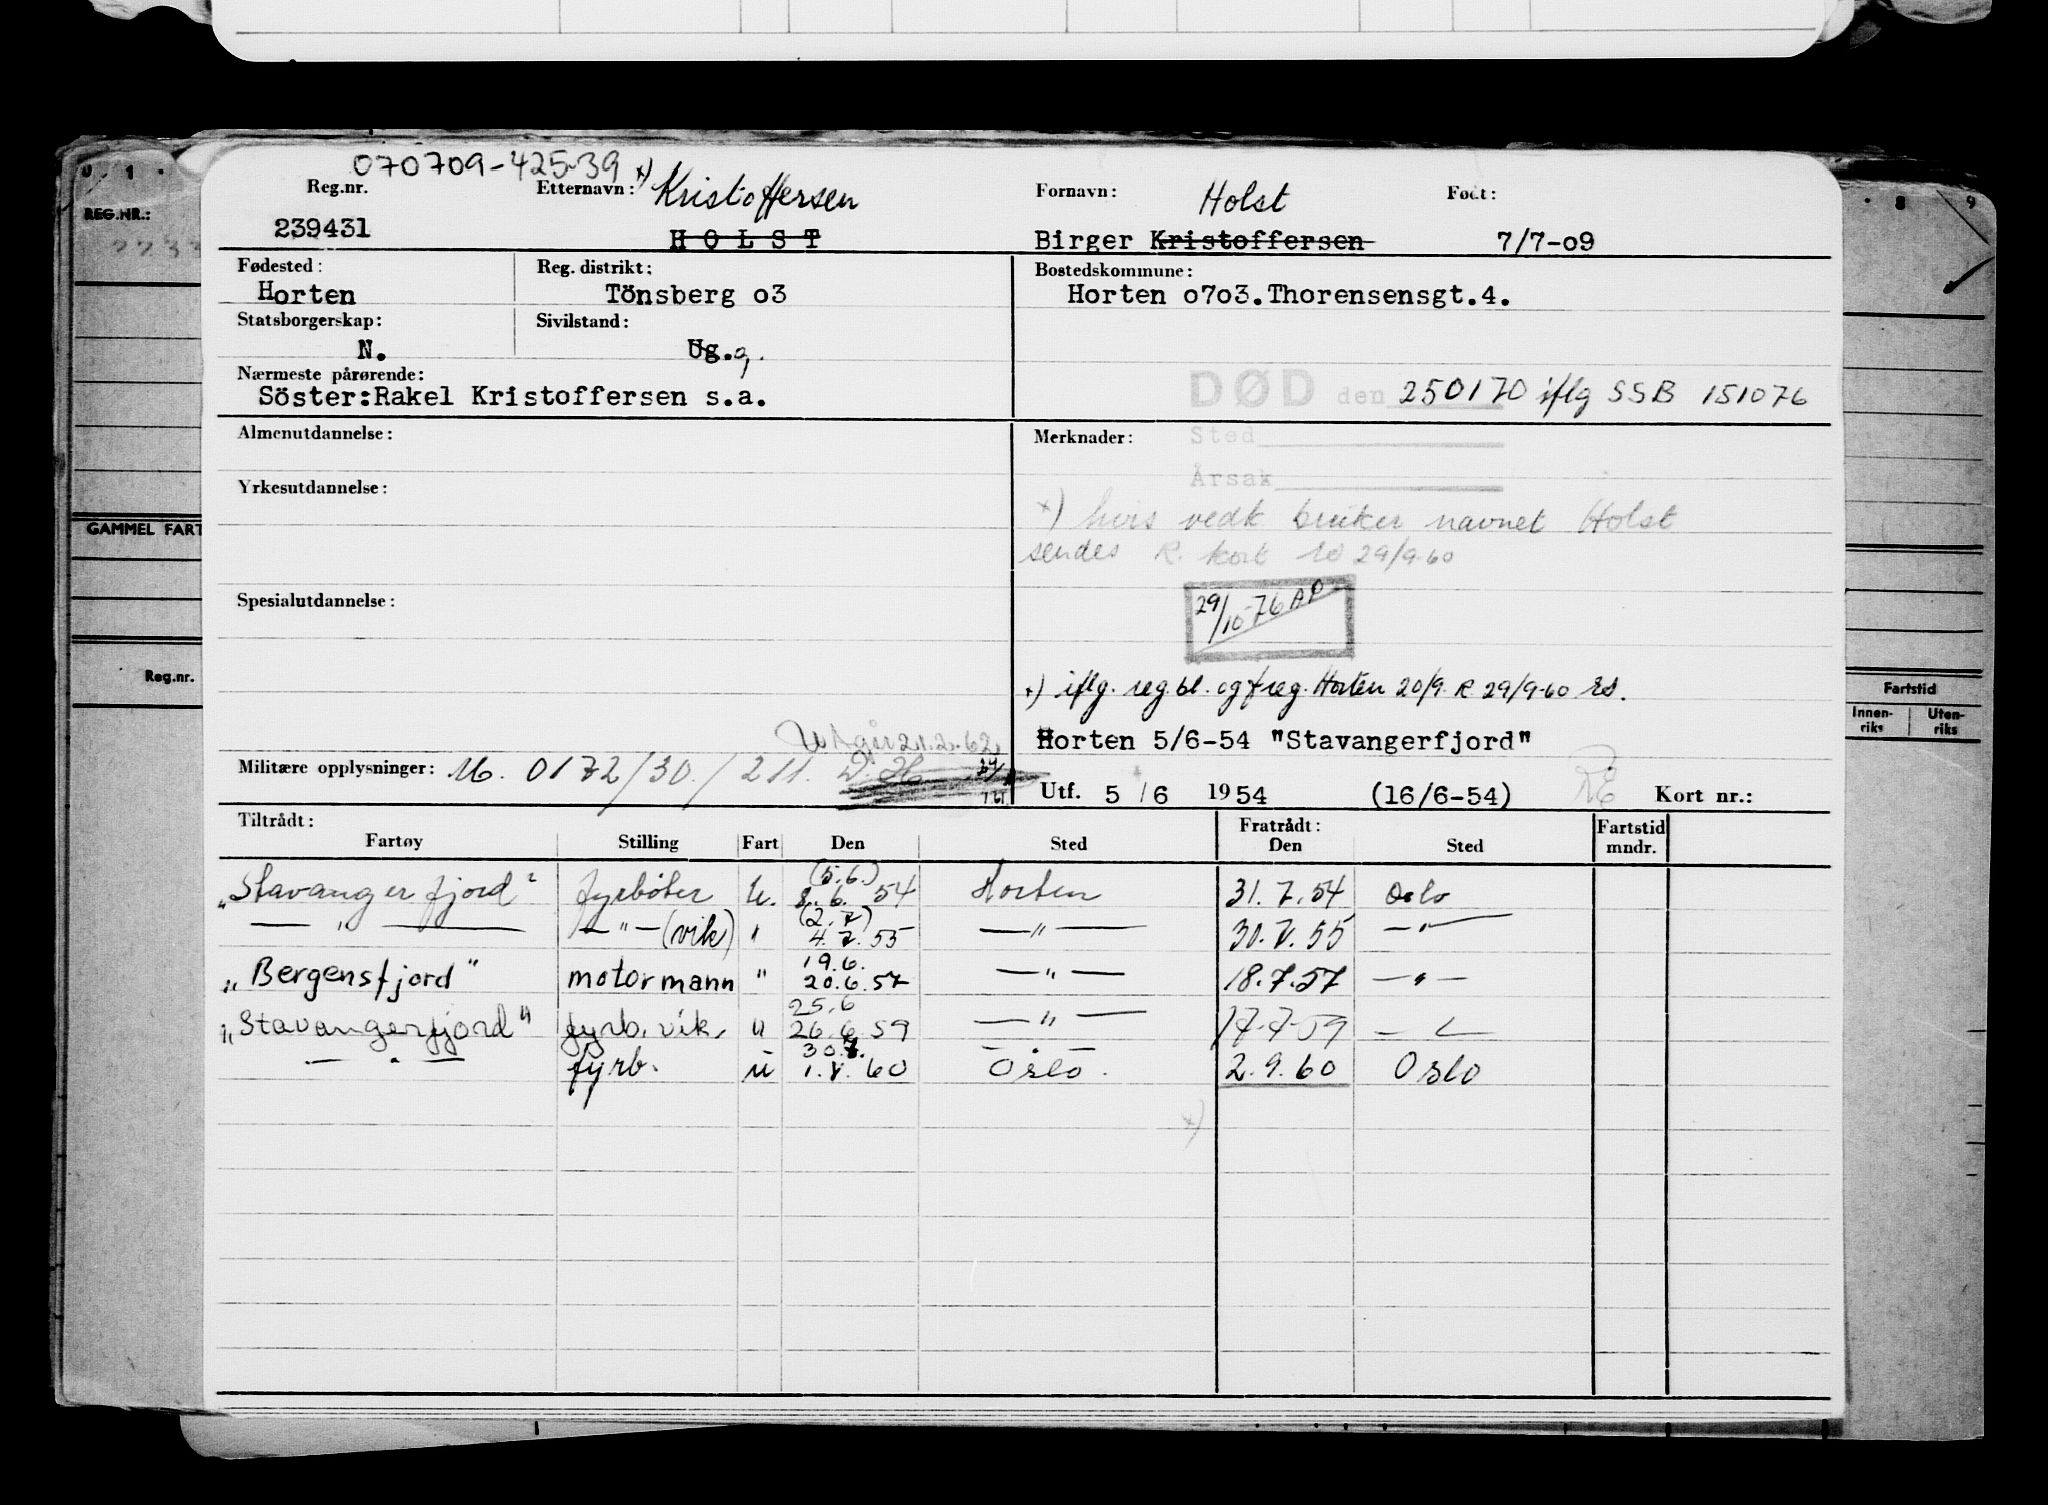 070709-425-39
Reg.nr. Etternavn: x) Kristoffersen Fornavn: Holst Født:
239431 HOLST Birger Kristoffersen 7/7-09
Fødested: Reg. distrikt: Bostedskommune:
Horten Tönsberg 03 Horten 0703.Thorensensgt.4.
Statsborgerskap: Sivilstand:
N. Ug. g.
Nærmeste pårørende:
Söster:Rakel Kristoffersen s.a. DØD den 250170 iflg SSB 151076
Almenutdannelse: Merknader: Sted
Årsak
Yrkesutdannelse:
x) hvis vedk bruker navnet Holst
sendes R. kort 29/9-60
Spesialutdannelse: 29/10-76 AP
x) iflg. reg.bl. og freg. Horten 20/9. R 29/9-60
Utgår 21.2.62. Horten 5/6-54 "Stavangerfjord"
Militære opplysninger: M. 0172/30./211. Utf. 5/6 1954 (16/6-54) RE Kort nr.:
Tiltrådt: Fratrådt: Fartstid
Fartøy Stilling Fart Den Sted Den Sted mndr.
(5.6.)
"Stavangerfjord" fyrbøter u. 8.6. 54 Horten 31.7.54 Oslo
(2.7)
— " — — " — (vik) " 4.7.55 — " — 30.7.55 — " —
19.6.
"Bergensfjord" motormann " 20.6.57 — " — 18.7.57 — " —
25.6
"Stavangerfjord" fyrb. vik. u 26.6.59 — " — 17-7-59 — " —
30.7.
— " — fyrb. u 1.8.60 Oslo. 2.9.60 Oslo
x)
REG.NR.:
GAMMEL FART
Reg.nr.
8 9
Fartstid
Innen-riks Uten-riks